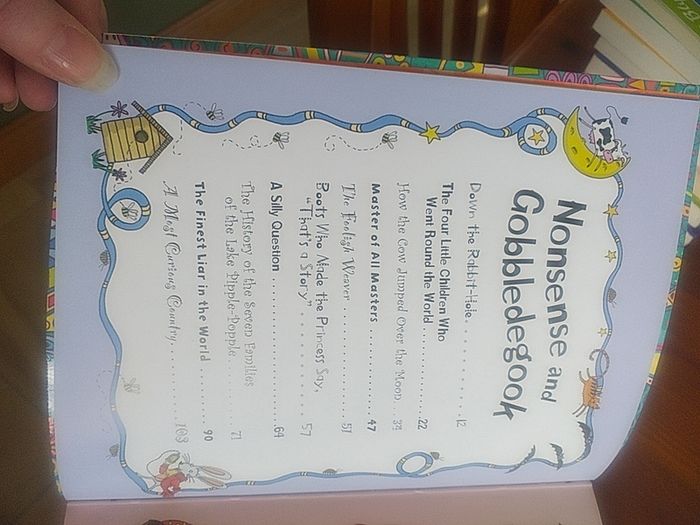 Nonsense and
Gobbledegook
Down the Rabbit-Hole..........12
The Four Little Children Who
Went Round the World..........22
How the Cow Jumped Over the Moon...34
Master of All Masters..........47
The Foolish Weaver..........51
Boots Who Made the Princess Say,
"That's a Story"..........57
A Silly Question..........64
The History of the Seven Families
of the Lake Pipple-Popple..........71
The Finest Liar in the World..........90
A Most Curious Country..........103